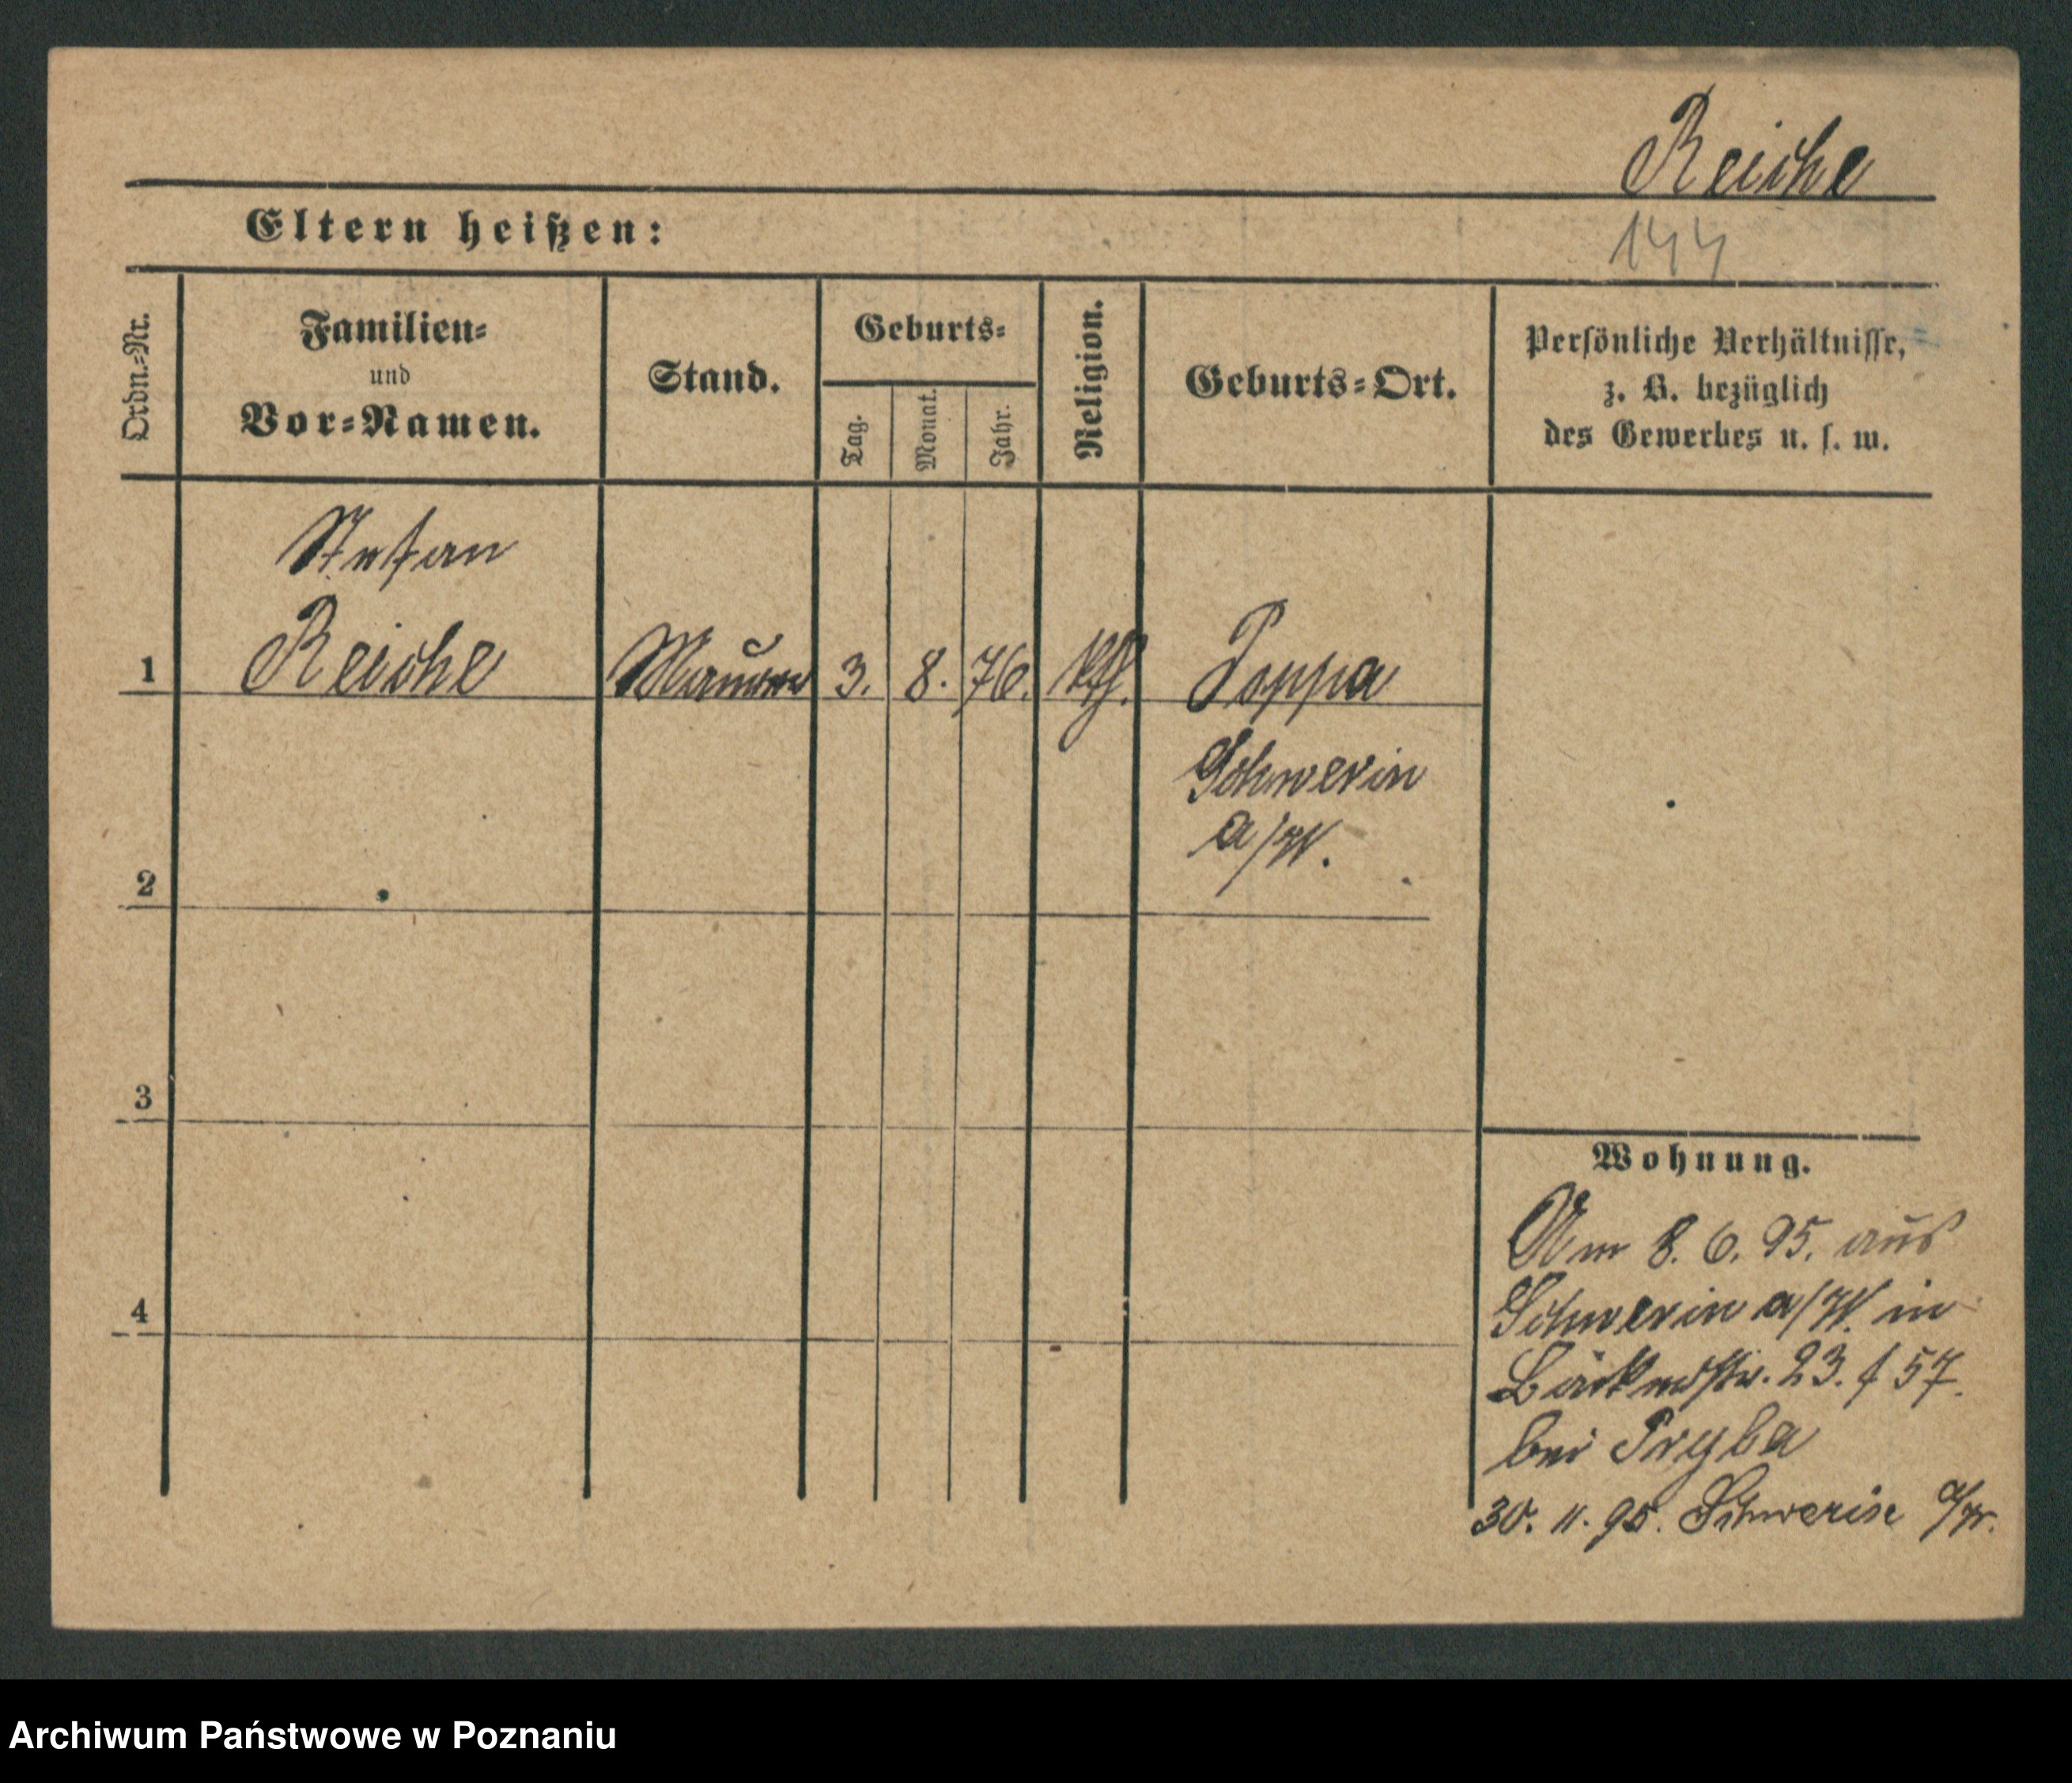 Reiche
144
Eltern heißen:
Ordn.-Nr.
Familien-
und
Vor-Namen.
Stand.
Geburts-
Tag.
Monat.
Jahr.
Religion.
Geburts-Ort.
Persönliche Verhältnisse,
z. B. bezüglich
des Gewerbes u. s. w.
Stefan
1 Reiche Maurer 3. 8. 76. kth. Poppa
Schwerin
a/W.
2
3
4
Wohnung.
Am 8. 6. 95. aus
Schwerin a/W. in
Bäckerstr. 23. f 57.
bei Pryba
30. 11. 95. Schwerin a/W.
Archiwum Państwowe w Poznaniu